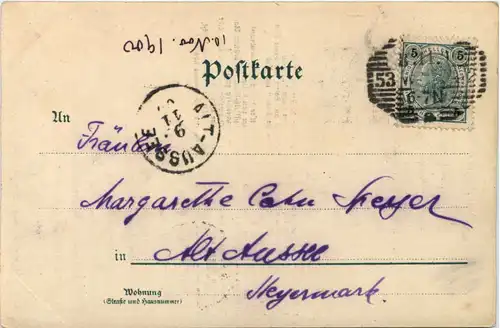 10. Nov. 1902
5 5
Postkarte
53
An
ALT-AUSSEE
9 11
Fräulein
Margarethe Cahn Speyer
in Alt Aussee
Steyermark.
Wohnung
(Straße und Hausnummer)